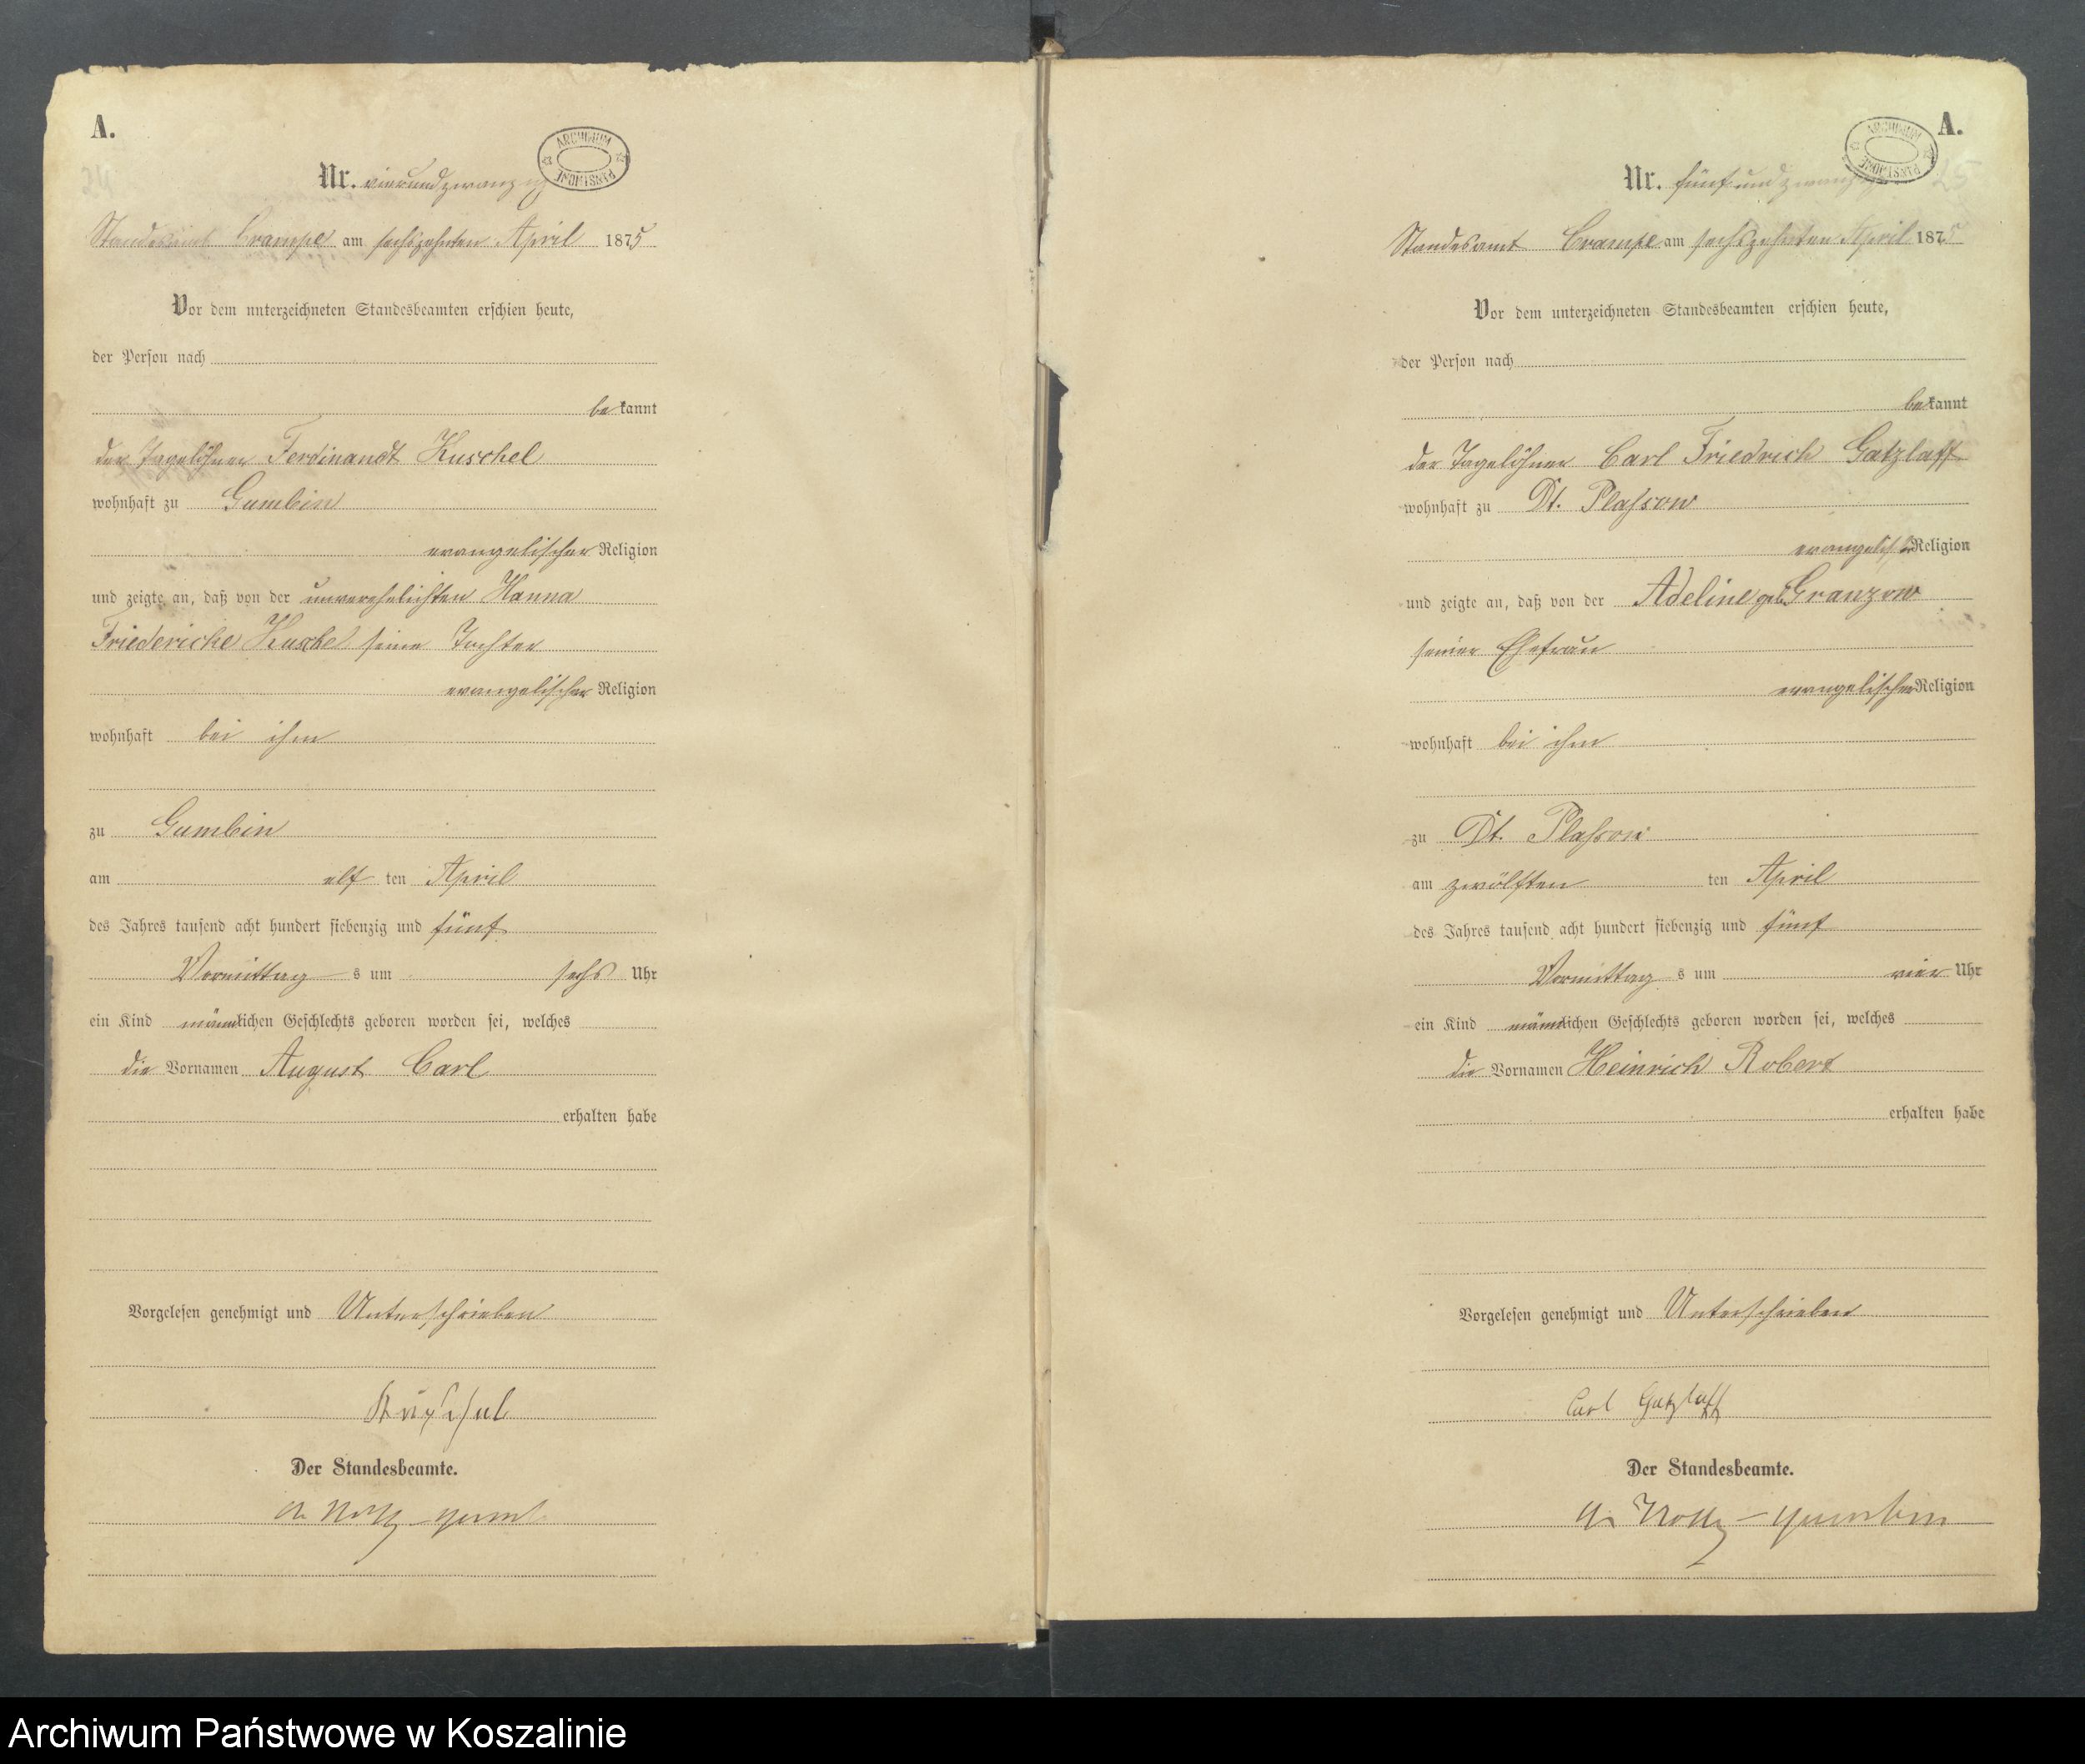 A.
ARCHIWUM PAŃSTWOWE
Nr. vierundzwanzig
Standesamt Crampe am sechszehnten April 1875
Vor dem unterzeichneten Standesbeamten erschien heute,
der Person nach
bekannt
der Tagelöhner Ferdinandt Kuschel
wohnhaft zu Gumbin
evangelischer Religion
und zeigte an, daß von der unverehelichten Hanna
Friedericke Kuschel seine Tochter
evangelischer Religion
wohnhaft bei ihm
zu Gumbin
am elf ten April
des Jahres tausend acht hundert siebenzig und fünf
Vormittag s um sechs Uhr
ein Kind männlichen Geschlechts geboren worden sei, welches
die Vornamen August Carl
erhalten habe
Vorgelesen genehmigt und Unterschrieben
Der Standesbeamte.
A.
ARCHIWUM PAŃSTWOWE
Nr. fünfundzwanzig 25
Standesamt Crampe am sechszehnten April 1875
Vor dem unterzeichneten Standesbeamten erschien heute,
der Person nach
bekannt
der Tagelöhner Carl Friedrich Gatzlaff
wohnhaft zu Dt. Plassow
evangelischer Religion
und zeigte an, daß von der Adeline geb. Granzow
seiner Ehefrau
evangelischer Religion
wohnhaft bei ihm
zu Dt. Plassow
am zwölften ten April
des Jahres tausend acht hundert siebenzig und fünf
Vormittag s um vier Uhr
ein Kind männlichen Geschlechts geboren worden sei, welches
die Vornamen Heinrich Robert
erhalten habe
Vorgelesen genehmigt und Unterschrieben
Carl Gatzlaff
Der Standesbeamte.
Gumbin
Archiwum Państwowe w Koszalinie